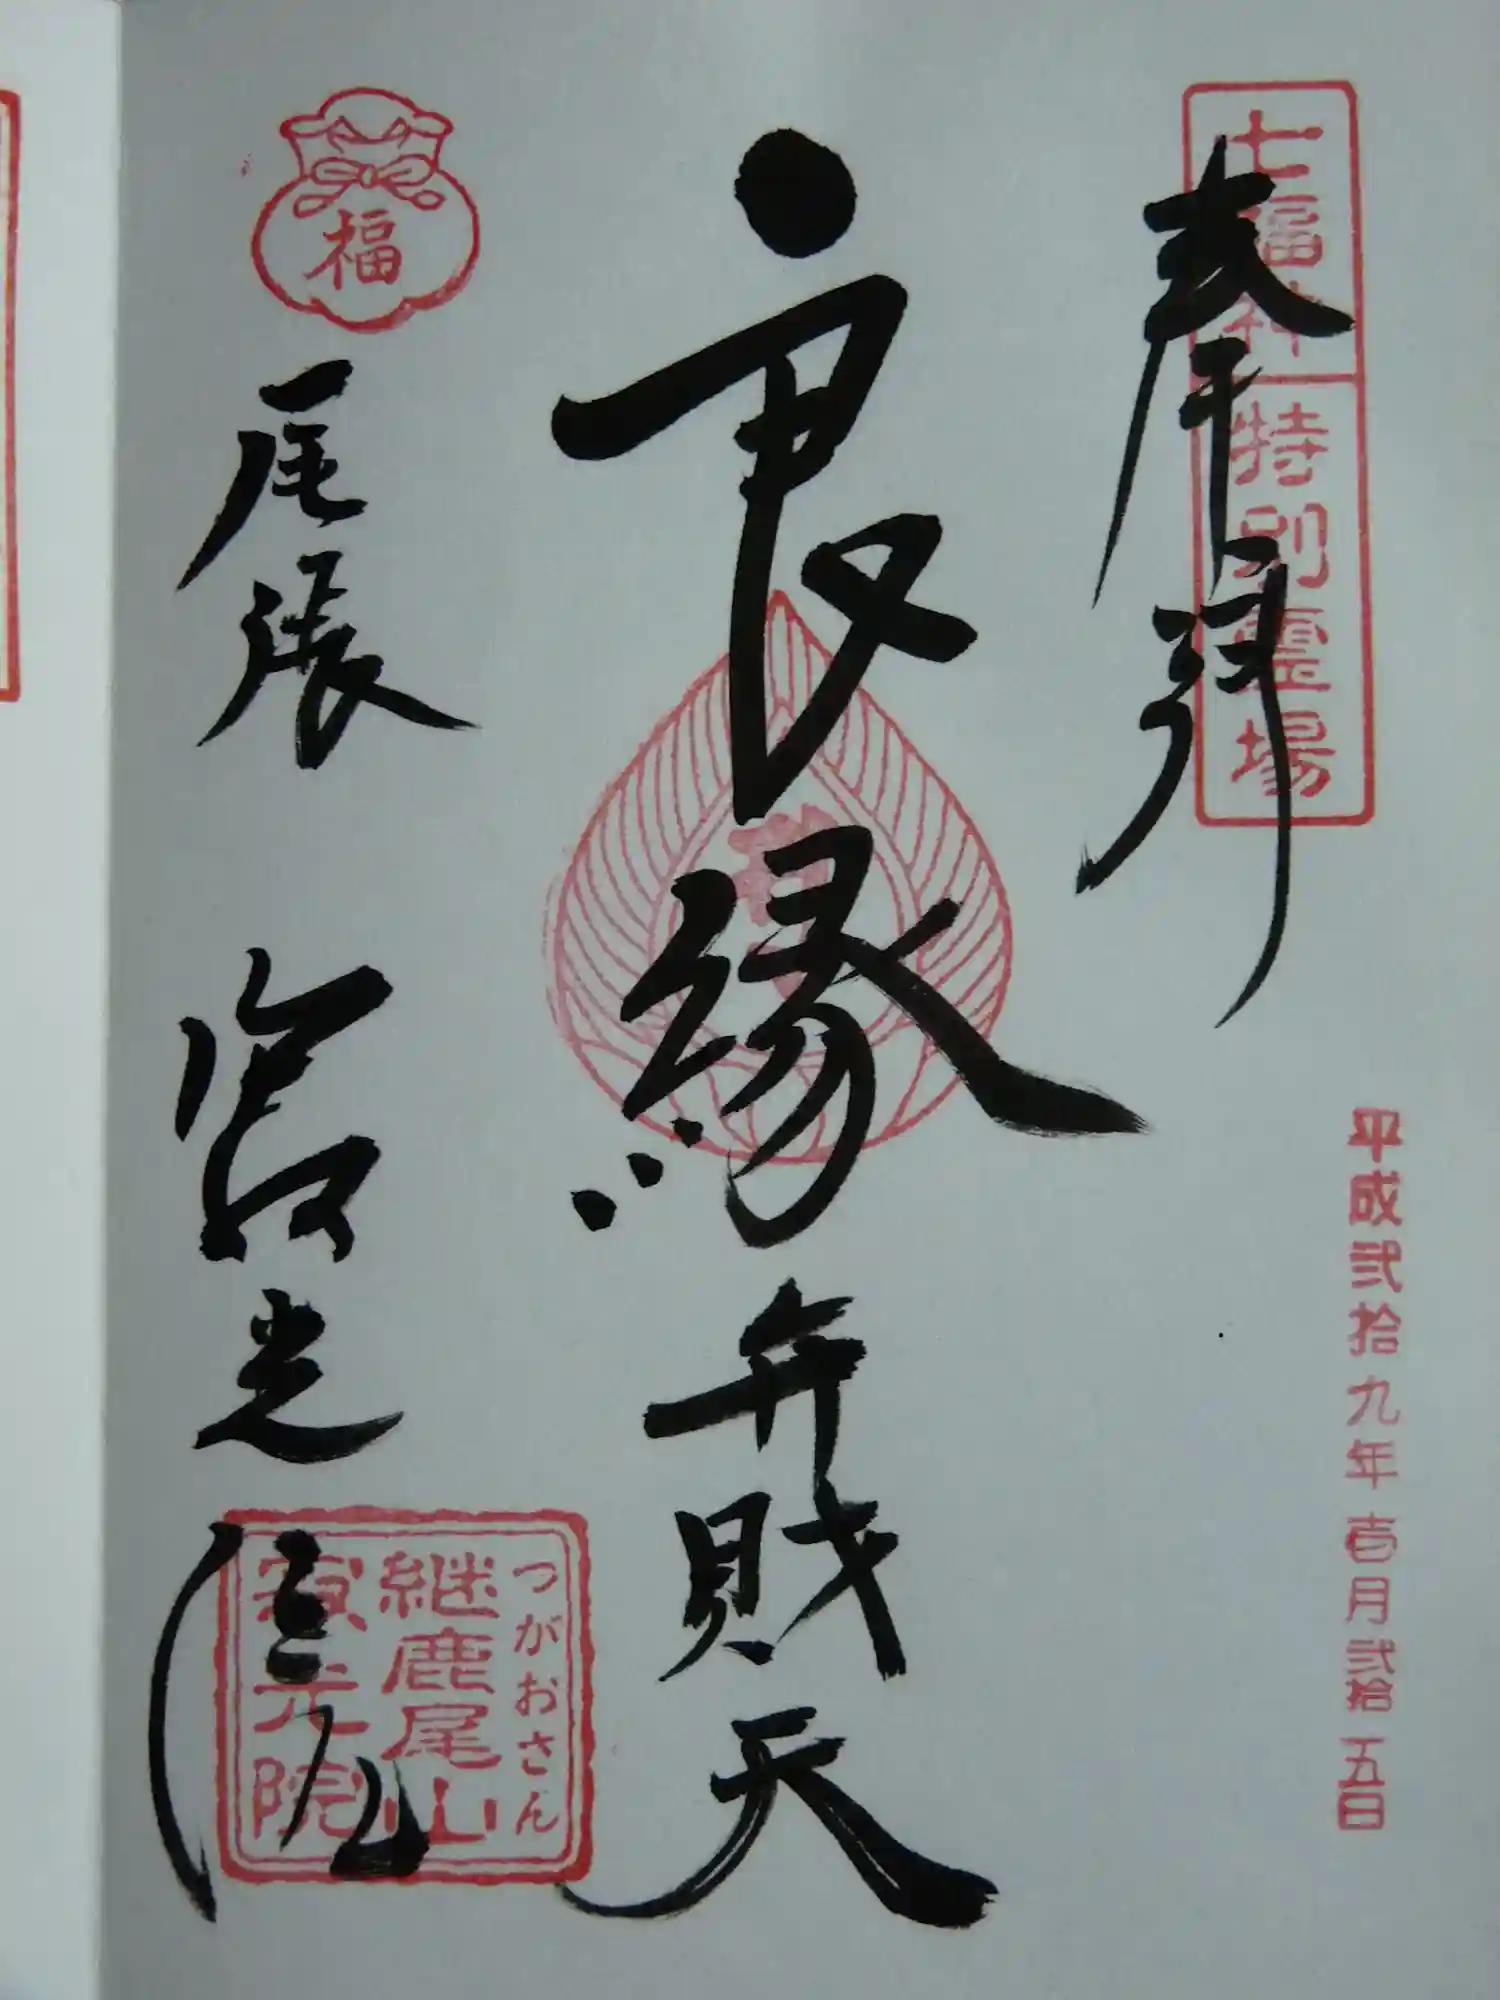 七福神 特別霊場
奉拝
平成弐拾九年壱月弐拾五日
良縁弁財天
福
尾張 寂光院
つがおさん
継鹿尾山
寂光院